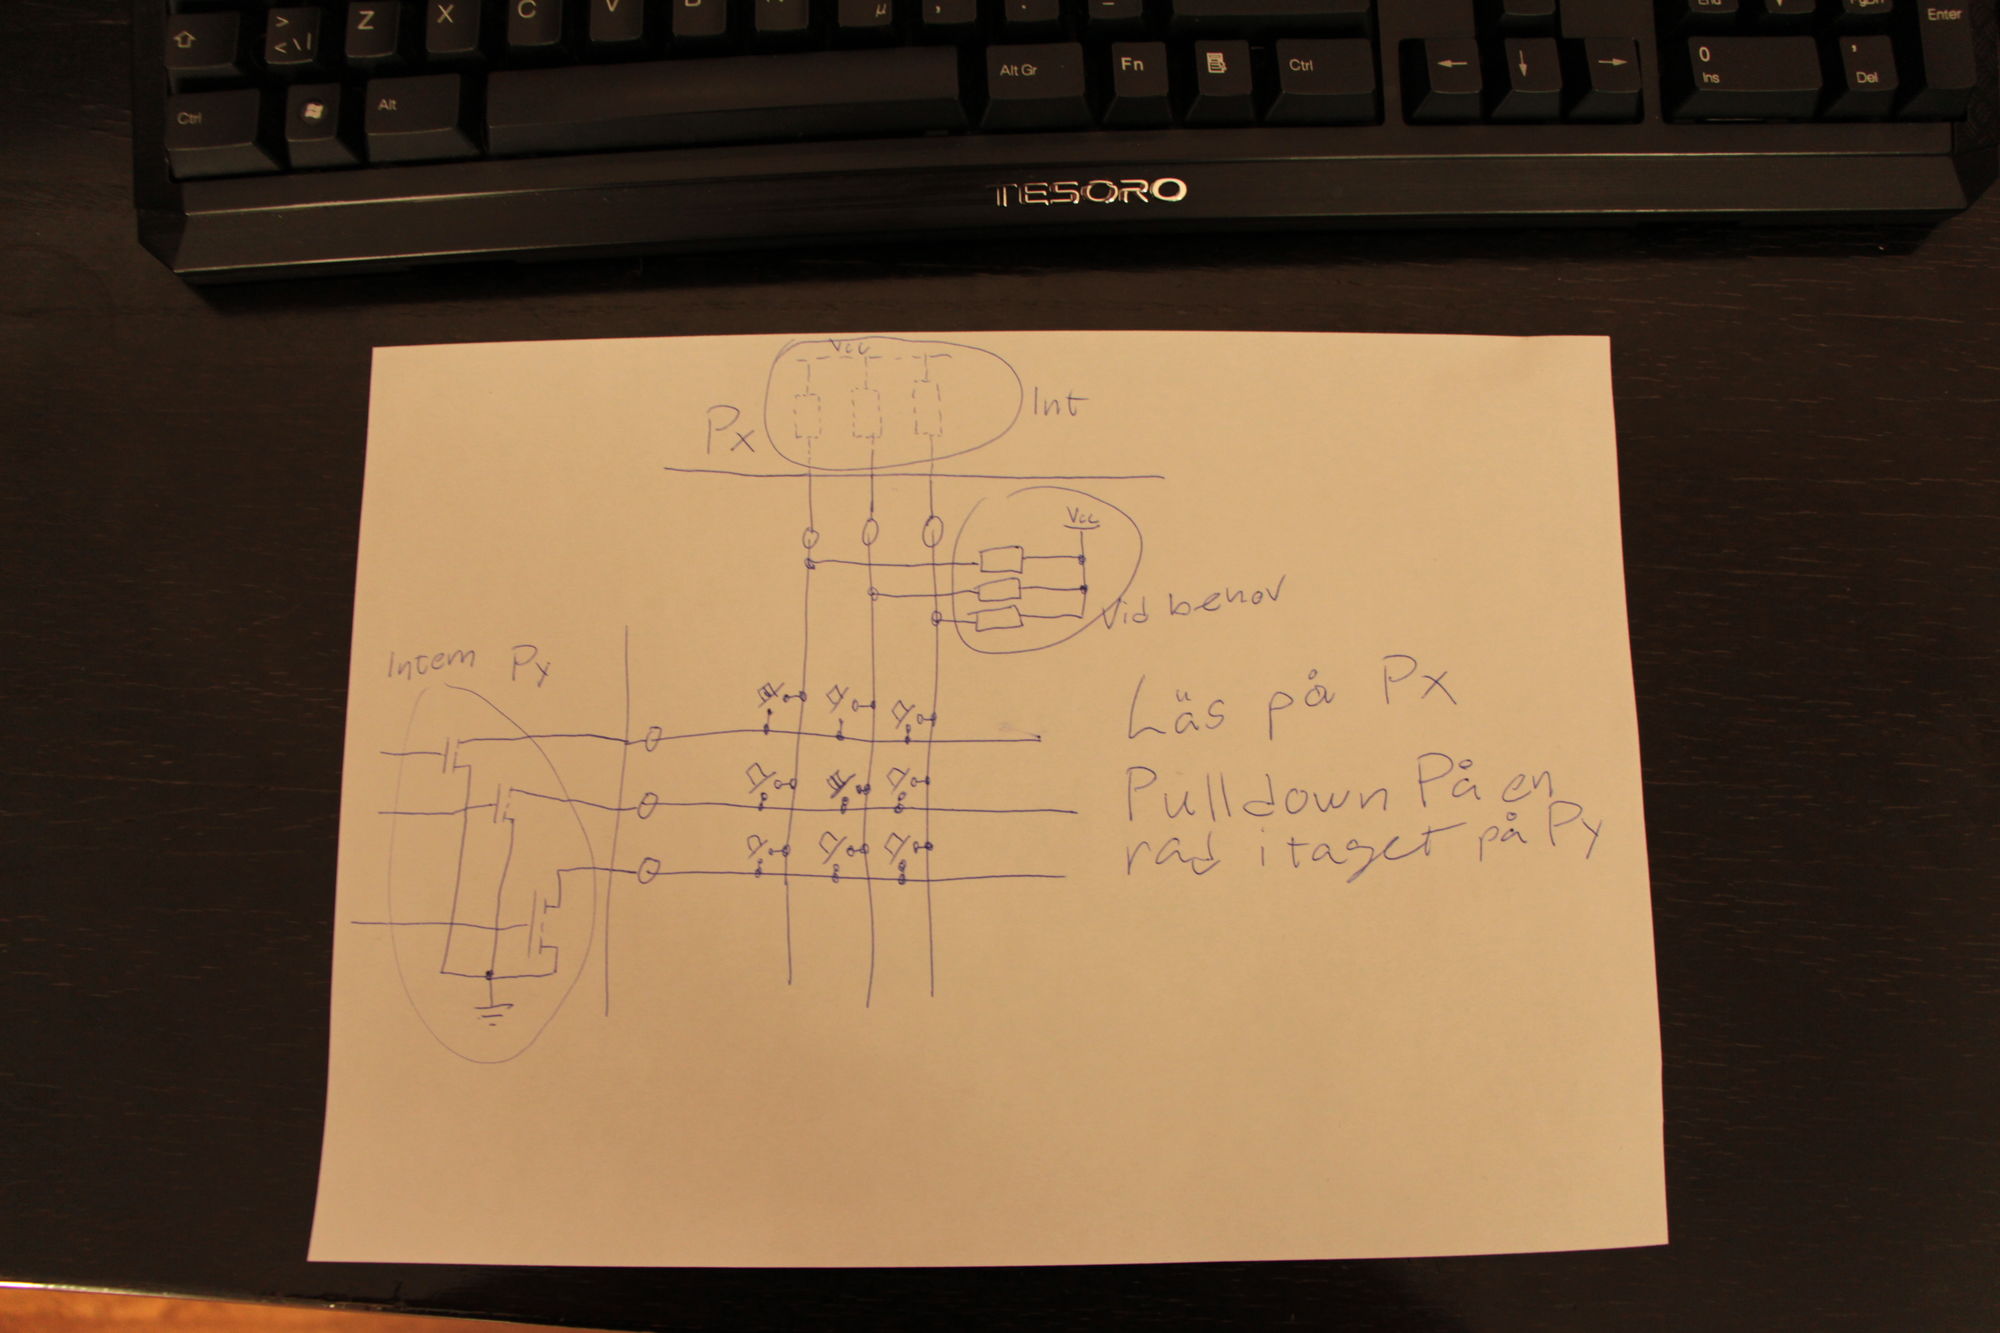 > Z X C V B µ ; : _ End PgDn Enter
< \ |
Ctrl Alt Alt Gr Fn Ctrl 0 , 
Ins Del
TESORO
Vcc
Px Int
Vcc
Vid behov
Intern Py
Läs på Px
Pulldown På en
rad i taget på Py